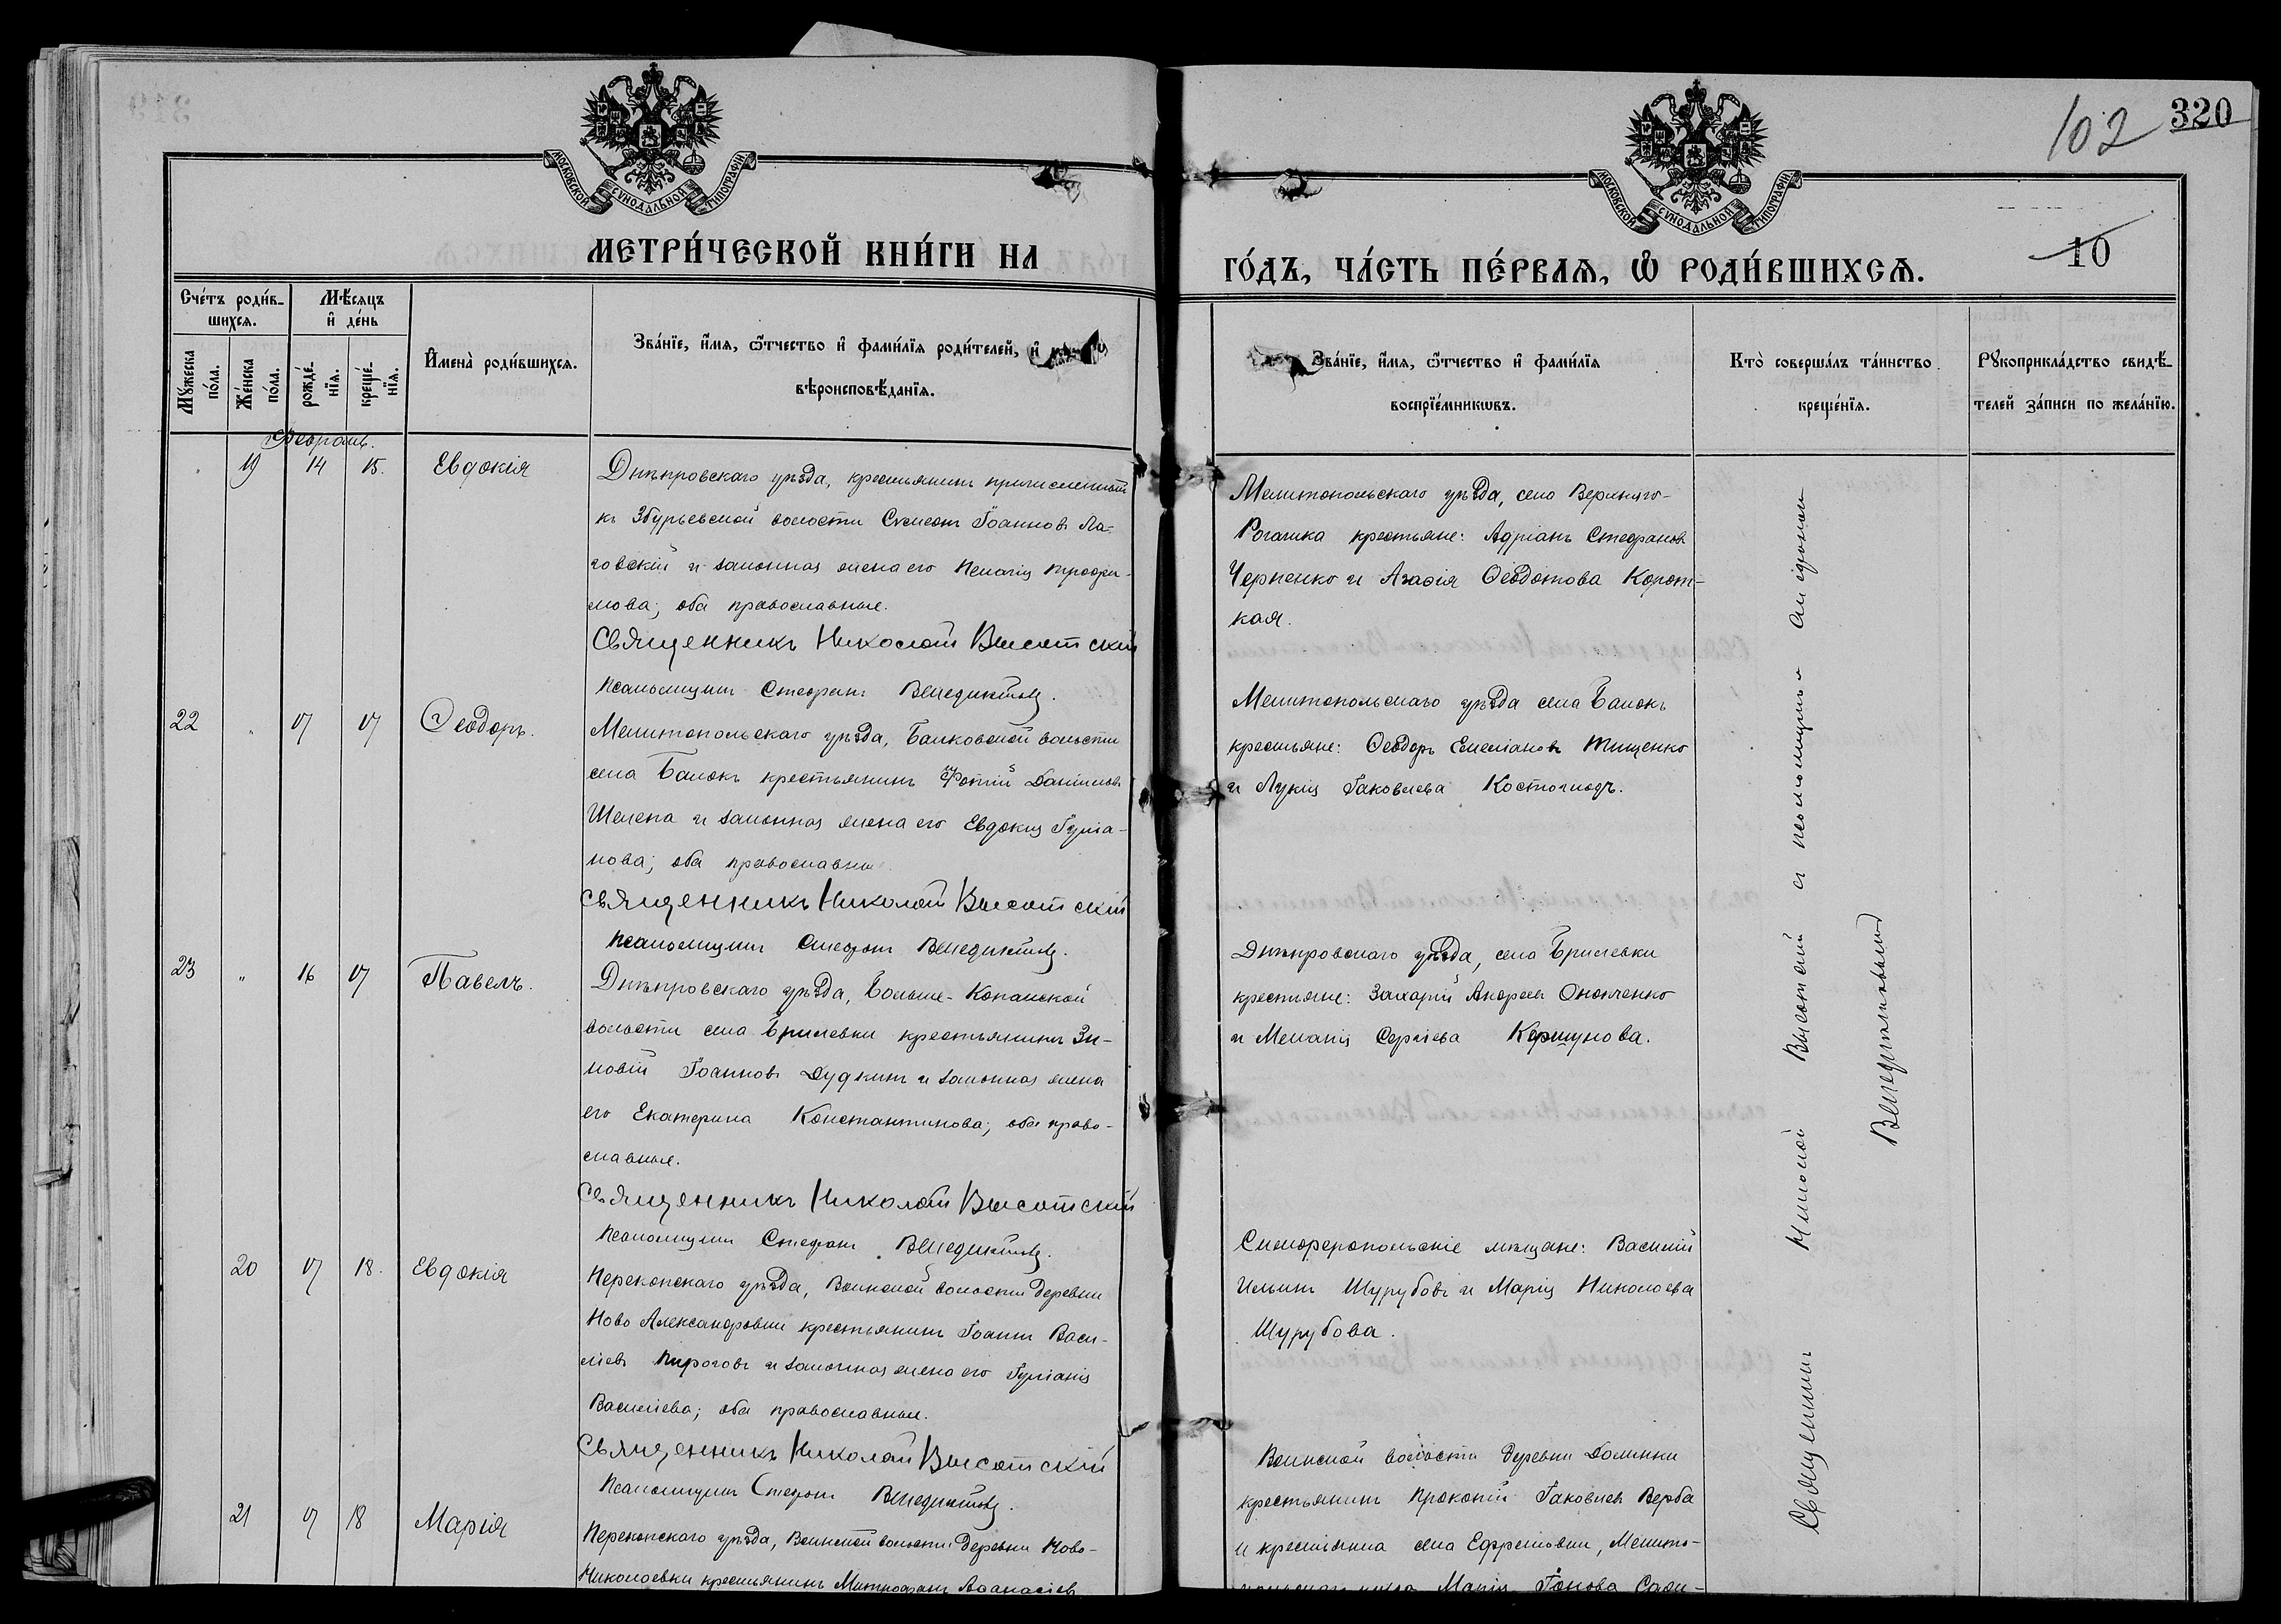 МОСКОВСКОЙ СѴНОДАЛЬНОЙ ТИПОГРАФІИ
МЕТРИ́ЧЕСКОЙ КНИ́ГИ НА
Сче́тъ роди́в-
шихся.
Мѣ́сяцъ
и҆ де́нь
Мꙋжеска
по́ла.
Же́нска
по́ла.
рожде́-
нїя.
креще́-
нїя.
И҆мена̀ роди́вшихся.
Зва́нїе, и҆́мя, ѻ҆́тчество и҆ фами́лїя роди́телей, и҆
вѣроисповѣ́данїя.
Февраль.
19 14 15. Евдокія
Днѣпровскаго уѣзда, крестьянинъ причисленный
къ Збурьевской волости Сѵмеонъ Іоанновъ Ла-
говскій и законная жена его Пелагія Трофи-
мова; оба православные.
Священникъ Николай Высотскій
Псаломщикъ Стефанъ Венедиктовъ.
22 " 17 17 Ѳеодоръ.
Мелитопольскаго уѣзда, Балковской волости
села Балокъ крестьянинъ Фотій Даніиловъ
Шелепа и законная жена его Евдокія Іуліа-
нова; оба православные.
Священникъ Николай Высотскій
Псаломщикъ Стефанъ Венедиктовъ.
23 " 16 17 Павелъ.
Днѣпровскаго уѣзда, Больше-Копанской
волости села Брилевки крестьянинъ Зи-
новій Іоанновъ Дудкинъ и законная жена
его Екатерина Константинова; оба право-
славные.
Священникъ Николай Высотскій
Псаломщикъ Стефанъ Венедиктовъ.
20 17 18. Евдокія
Перекопскаго уѣзда, Воинской волости деревни
Ново Александровки крестьянинъ Іоаннъ Васи-
ліевъ Пироговъ и законная жена его Іуліанія
Василіева; оба православные.
Священникъ Николай Высотскій
Псаломщикъ Стефанъ Венедиктовъ.
21 17 18 Марія
Перекопскаго уѣзда, Воинской волости деревни Ново-
Николаевки крестьянинъ Митрофанъ Аѳанасіевъ
102 320
МОСКОВСКОЙ СѴНОДАЛЬНОЙ ТИПОГРАФІИ
10
ГО́ДЪ, ЧА́СТЬ ПЕ́РВАЯ, Ѡ҆ РОДИ́ВШИХСЯ.
Зва́нїе, и҆́мя, ѻ҆́тчество и҆ фами́лїя
воспрїе́мникѡвъ.
Кто̀ соверша́лъ та́инство
креще́нїя.
Рꙋкоприкла́дство свидѣ́-
телей за́писи по жела́нїю.
Мелитопольскаго уѣзда, село Верхняго-
Рогачика крестьяне: Адріанъ Стефановъ
Черненко и Агаѳія Ѳеодотова Корот-
кая.
Мелитопольскаго уѣзда села Балокъ
крестьяне: Ѳеодоръ Емеліановъ Тищенко
и Лукія Іаковлева
Днѣпровскаго уѣзда, села Брилевки
крестьяне: Захарій Андреевъ Ононченко
и Меланія Сергіева Коршунова.
Симферопольскіе мѣщане: Василій
Ильинъ Шурубовъ и Марія Николаева
Шурубова.
Воинской волости деревни Долинки
крестьянинъ Прокопій Іаковлевъ Верба
и крестьянка села Ефремовки, Мелито-
польскаго уѣзда Марія Іонова
Священникъ Николай Высотскій съ псаломщикомъ Стефаномъ
Венедиктовымъ